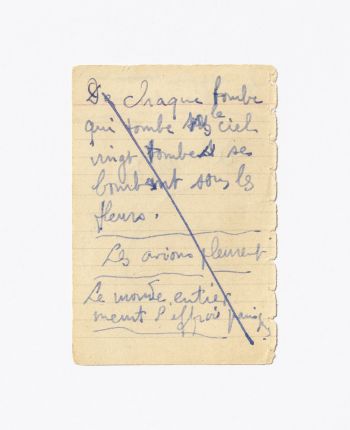 De chaque tombe
qui tombe le ciel
vingt tombes se
bombent sous les
fleurs.
Les avions pleurent
Le monde entier
meurt d'effroi